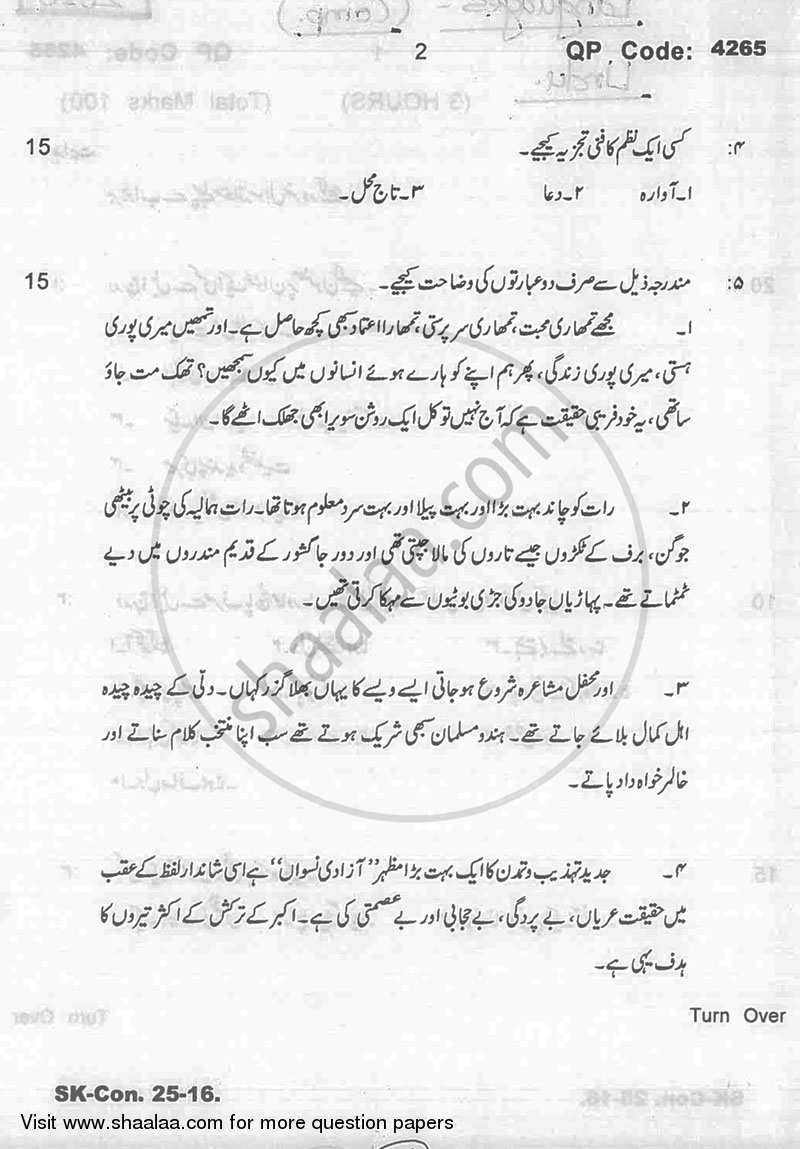 2
QP Code: 4265
۴: کسی ایک نظم کا فنی تجزیہ کیجیے۔ 15
۱۔ آوارہ ۲۔ دعا ۳۔ تاج محل۔
۵: مندرجہ ذیل سے صرف دو عبارتوں کی وضاحت کیجیے۔ 15
۱۔ مجھے تمھاری محبت، تمھاری سرپرستی، تمھارا اعتماد سبھی کچھ حاصل ہے۔ اور تمھیں میری پوری
ہستی، میری پوری زندگی، پھر ہم اپنے کو ہارے ہوئے انسانوں میں کیوں سمجھیں؟ تھک مت جاؤ
ساتھی، یہ خود فریبی حقیقت ہے کہ آج نہیں تو کل ایک روشن سویرا بھی جھلک اٹھے گا۔
۲۔ رات کو چاند بہت بڑا اور بہت پیلا اور بہت سرد معلوم ہوتا تھا۔ رات ہمالیہ کی چوٹی پر بیٹھی
جوگن، برف کے ٹکڑوں جیسے تاروں کی مالا جپتی تھی اور دور جاگشور کے قدیم مندروں میں دیے
ٹمٹماتے تھے۔ پہاڑیاں جادو کی جڑی بوٹیوں سے مہکا کرتی تھیں۔
۳۔ اور محفل مشاعرہ شروع ہو جاتی ایسے ویسے کا یہاں بھلا گزر کہاں۔ دلّی کے چیدہ چیدہ
اہل کمال بلائے جاتے تھے۔ ہندو مسلمان سبھی شریک ہوتے تھے سب اپنا منتخب کلام سناتے اور
خالمر خواہ داد پاتے۔
۴۔ جدید تہذیب و تمدن کا ایک بہت بڑا مظہر ”آزادی نسواں“ ہے اسی شاندار لفظ کے عقب
میں حقیقت عریاں، بے پردگی، بے حجابی اور بے عصمتی کی ہے۔ اکبر کے ترکش کے اکثر تیروں کا
ہدف یہی ہے۔
Turn Over
SK-Con. 25-16.
Visit www.shaalaa.com for more question papers
shaalaa.com